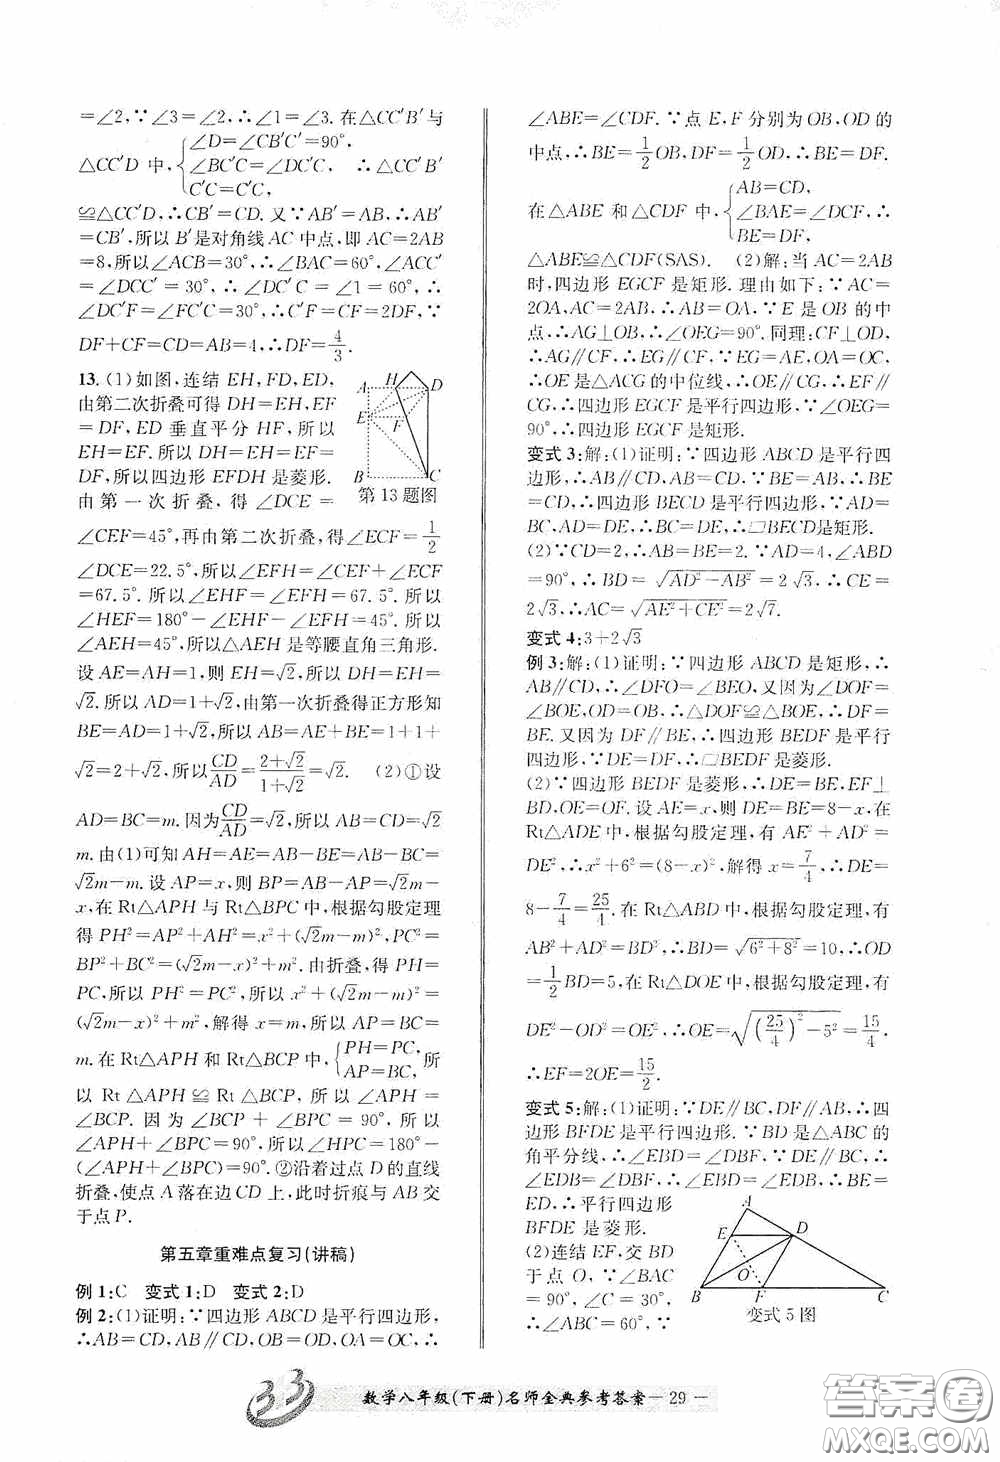 =∠2,∵∠3=∠2,∴∠1=∠3.在△CC′B′与
△CC′D 中,{∠D=∠CB′C′=90°. ∠BC′C=∠DC′C, C′C=C′C, ∴△CC′B′
≌△CC′D,∴CB′=CD.又∵AB′=AB,∴AB′
=CB′,所以 B′是对角线 AC 中点,即 AC=2AB
=8,所以∠ACB=30°,∴∠BAC=60°,∠ACC′
=∠DCC′=30°,∴∠DC′C=∠1=60°,∴
∠DC′F=∠FC′C=30°,∴C′F=CF=2DF,∵
DF+CF=CD=AB=4,∴DF=4/3.
13.(1)如图,连结 EH,FD,ED,
由第二次折叠可得 DH=EH,EF
=DF,ED 垂直平分 HF,所以
EH=EF.所以 DH=EH=EF=
DF,所以四边形 EFDH 是菱形.
由第一次折叠,得∠DCE=
A H D
E F
B C
第 13 题图
∠CEF=45°,再由第二次折叠,得∠ECF=1/2
∠DCE=22.5°,所以∠EFH=∠CEF+∠ECF
=67.5°.所以∠EHF=∠EFH=67.5°.所以
∠HEF=180°-∠EHF-∠EFH=45°,所以
∠AEH=45°,所以△AEH 是等腰直角三角形.
设 AE=AH=1,则 EH=√2,所以 DH=EH=
√2.所以 AD=1+√2,由第一次折叠得正方形知
BE=AD=1+√2,所以 AB=AE+BE=1+1+
√2=2+√2,所以CD/AD=(2+√2)/(1+√2)=√2. (2)①设
AD=BC=m.因为CD/AD=√2,所以 AB=CD=√2
m.由(1)可知 AH=AE=AB-BE=AB-BC=
√2m-m.设 AP=x,则 BP=AB-AP=√2m-
x,在 Rt△APH 与 Rt△BPC 中,根据勾股定理
得 PH²=AP²+AH²=x²+(√2m-m)²,PC²=
BP²+BC²=(√2m-x)²+m².由折叠,得 PH=
PC,所以 PH²=PC²,所以 x²+(√2m-m)²=
(√2m-x)²+m²,解得 x=m,所以 AP=BC=
m.在 Rt△APH 和 Rt△BCP 中,{PH=PC, AP=BC, 所
以 Rt△APH≌Rt△BCP,所以∠APH=
∠BCP.因为∠BCP+∠BPC=90°,所以
∠APH+∠BPC=90°,所以∠HPC=180°-
(∠APH+∠BPC)=90°.②沿着过点 D 的直线
折叠,使点 A 落在边 CD 上,此时折痕与 AB 交
于点 P.
第五章重难点复习(讲稿)
例 1:C 变式 1:D 变式 2:D
例 2:(1)证明:∵四边形 ABCD 是平行四边形,
∴AB=CD,AB∥CD,OB=OD,OA=OC,∴
∠ABE=∠CDF.∵点 E,F 分别为 OB,OD 的
中点,∴BE=1/2OB,DF=1/2OD,∴BE=DF.
在△ABE 和△CDF 中,{AB=CD, ∠BAE=∠DCF, BE=DF, ∴
△ABE≌△CDF(SAS). (2)解:当 AC=2AB
时,四边形 EGCF 是矩形.理由如下:∵AC=
2OA,AC=2AB,∴AB=OA,∵E 是 OB 的中
点,∴AG⊥OB,∴∠OEG=90°.同理:CF⊥OD,
∴AG∥CF,∴EG∥CF,∵EG=AE,OA=OC,
∴OE 是△ACG 的中位线,∴OE∥CG,∴EF∥
CG,∴四边形 EGCF 是平行四边形,∵∠OEG=
90°,∴四边形 EGCF 是矩形.
变式 3:解:(1)证明:∵四边形 ABCD 是平行四
边形,∴AB∥CD,AB=CD,∵BE=AB,∴BE
=CD,∴四边形 BECD 是平行四边形,∵AD=
BC,AD=DE,∴BC=DE,∴□BECD是矩形.
(2)∵CD=2,∴AB=BE=2.∵AD=4,∠ABD
=90°,∴BD=√(AD²-AB²)=2√3.∴CE=
2√3,∴AC=√(AE²+CE²)=2√7.
变式 4:3+2√3
例 3:解:(1)证明:∵四边形 ABCD 是矩形,∴
AB∥CD,∴∠DFO=∠BEO,又因为∠DOF=
∠BOE,OD=OB,∴△DOF≌△BOE,∴DF=
BE.又因为 DF∥BE,∴四边形 BEDF 是平行
四边形,∵DE=DF,∴□BEDF 是菱形.
(2)∵四边形 BEDF 是菱形,∴DE=BE,EF⊥
BD,OE=OF.设 AE=x,则 DE=BE=8-x,在
Rt△ADE 中,根据勾股定理,有 AE²+AD²=
DE²,∴x²+6²=(8-x)²,解得 x=7/4,∴DE=
8-7/4=25/4.在 Rt△ABD 中,根据勾股定理,有
AB²+AD²=BD²,∴BD=√(6²+8²)=10,∴OD
=1/2BD=5,在 Rt△DOE 中,根据勾股定理,有
DE²-OD²=OE²,∴OE=√((25/4)²-5²)=15/4.
∴EF=2OE=15/2.
变式 5:解:(1)证明:∵DE∥BC,DF∥AB,∴四
边形 BFDE 是平行四边形.∵BD 是△ABC 的
角平分线,∴∠EBD=∠DBF,∵DE∥BC,∴
∠EDB=∠DBF,∴∠EBD=∠EDB,∴BE=
ED,∴平行四边形
BFDE 是菱形.
(2)连结 EF,交 BD
于点 O,∵∠BAC
=90°,∠C=30°,
∴∠ABC=60°,∵
A
E D
O
B F C
变式 5 图
33 数学八年级(下册)名师金典参考答案—29—
答案圈
MXQE.COM